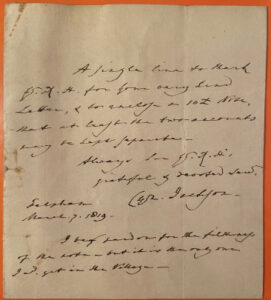 A single line to thank
Yr. R. H. for your very kind
Letter, & to enclose a 10th Note,
that at least the two accounts
may be kept separate –
Always Sir Yr. R. H.'s
grateful & devoted Servt.
Cyr. Jackson.
Felpham
March 7. 1819.
I beg pardon for the filthiness
of the note – but it is the only one
I cd. get in the Village –